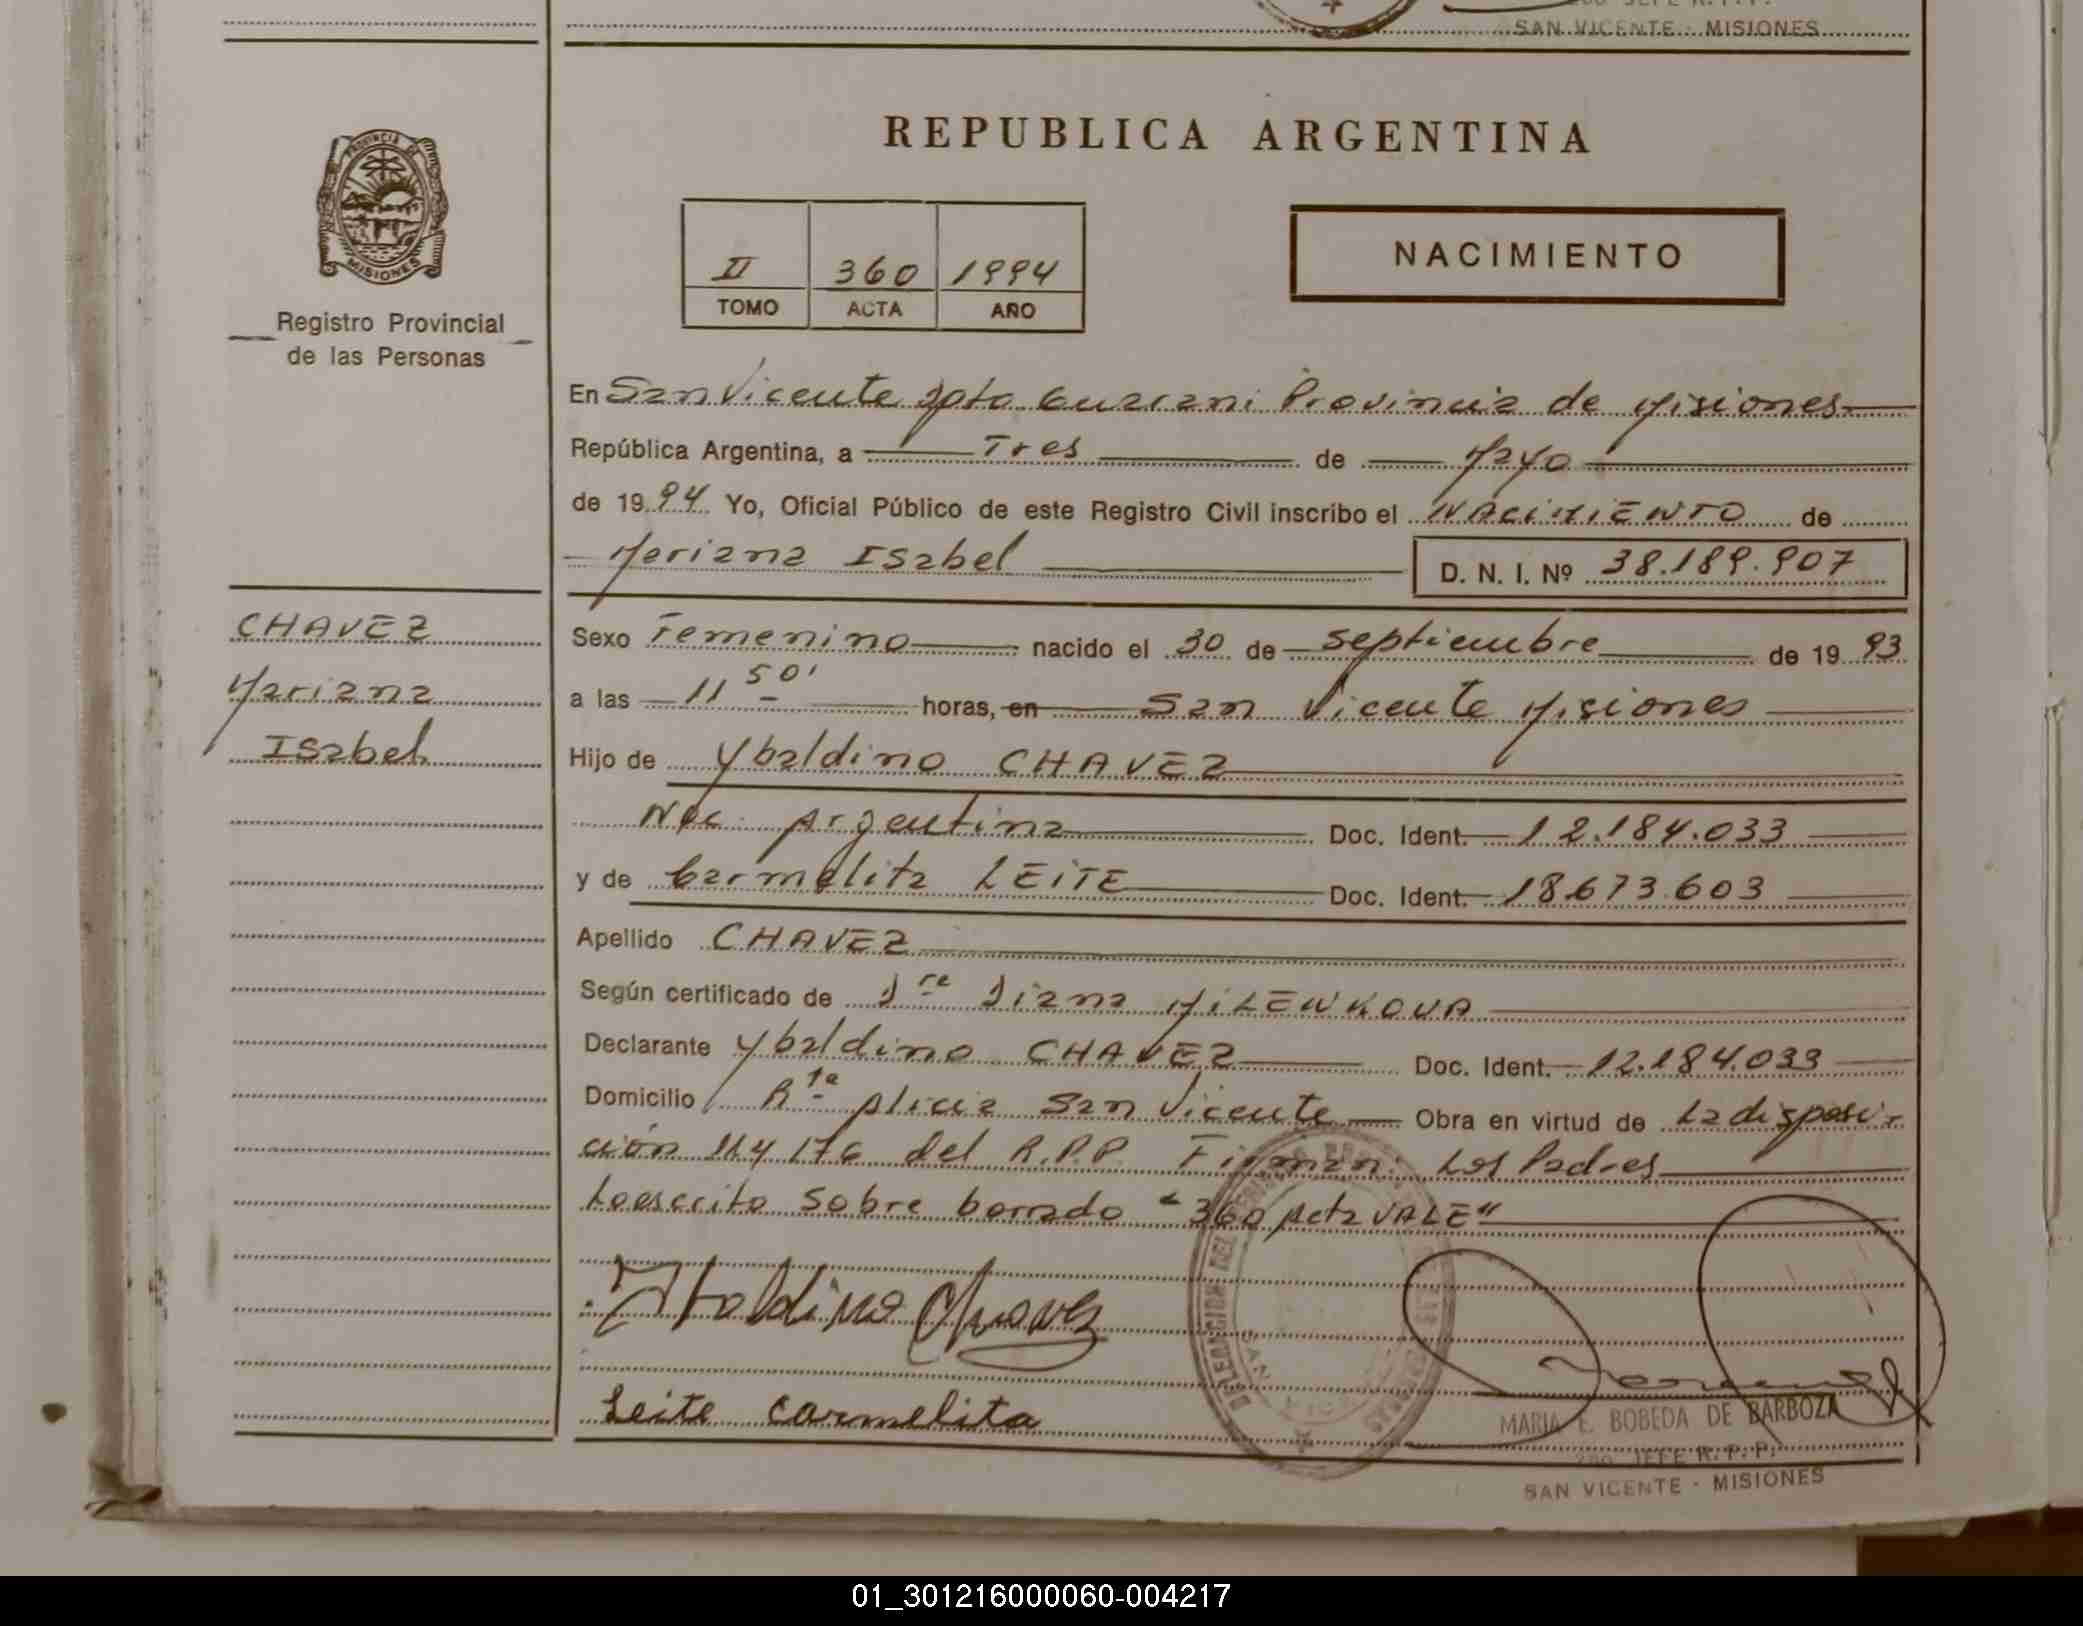 SAN VICENTE - MISIONES
REPUBLICA ARGENTINA
PROVINCIA DE
MISIONES
Registro Provincial
de las Personas
II 360 1994
TOMO ACTA AÑO
NACIMIENTO
En San Vicente Dpto Guarani Provincia de Misiones
República Argentina, a Tres de Mayo
de 1994 Yo, Oficial Público de este Registro Civil inscribo el NACIMIENTO de
Mariana Isabel D. N. I. Nº 38.189.907
CHAVEZ
Mariana
Isabel
Sexo Femenino nacido el 30 de septiembre de 1993
a las 11 50' horas, en San Vicente Misiones
Hijo de Ybaldino CHAVEZ
Nac. Argentina Doc. Ident. 12.184.033
y de Carmelita LEITE Doc. Ident. 18.673.603
Apellido CHAVEZ
Según certificado de Dra Diana MILENKOVA
Declarante Ybaldino CHAVEZ Doc. Ident. 12.184.033
Domicilio Rta Alicia San Vicente Obra en virtud de La disposi-
ción 114/176 del R.P.P. Firman: Los Padres
Lo escrito sobre borrado "360 Acta VALE"
Ybaldino Chavez
Leite Carmelita
MARIA E. BOBEDA DE BARBOZA
2do JEFE R.P.P.
SAN VICENTE - MISIONES
01_301216000060-004217